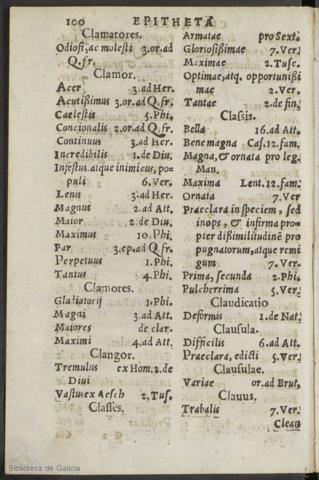 100 EPITHETA
Clamatores.
Odiosi, ac molesti 3. or. ad
Q. fr.
Clamor.
Acer 3. ad Her.
Acutißimus 3. or. ad Q. fr.
Caelestis 5. Phi.
Concionalis 2. or. ad Q. fr.
Continuus 3. ad Her.
Incredibilis 1. de Diu.
Infestus. atque inimicus, po-
puli 6. Ver.
Lenis 3. ad Her.
Magnus 2. ad Att.
Maior 2. de Diu.
Maximus 10. Phi.
Par 3. ep. ad Q. fr.
Perpetuus 1. Phi.
Tantus 4. Phi.
Clamores.
Gladiatorij 1. Phi.
Magni 3. ad Att.
Maiores de clar.
Maximi 4. ad Att.
Clangor.
Tremulus ex Hom. 2. de
Diui
Vastus ex Aesch 2. Tus.
Classes.
Armatae pro Sext.
Gloriosißimae 7. Ver.
Maximae 2. Tusc.
Optimae, atq. opportunißi
mae 2. Ver.
Tantae 2. de fin.
Classis.
Bella 16. ad Att.
Bene magna Cas. 12. fam.
Magna, & ornata pro leg.
Man.
Maxima Lent. 12. fam.
Ornata 7. Ver
Praeclara in speciem, sed
inops, & infirma pro-
pter dißimilitudinē pro
pugnatorum, atque remi
gum 7. Ver.
Prima, secunda 2. Phi.
Pulcherrima 5. Ver.
Claudicatio
Deformis 1. de Nat.
Clausula.
Difficilis 6. ad Att.
Praeclara, edicti 5. Ver.
Clausulae.
Variae or. ad Brut.
Clauus.
Trabalis 7. Ver.
Clean
Biblioteca de Galicia